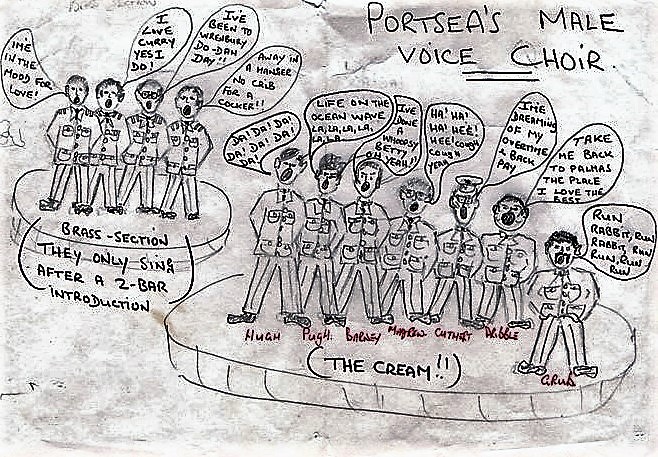 PORTSEA'S MALE
VOICE CHOIR.
BRASS SECTION
IME
IN THE
MOOD FOR
LOVE!
I
LOVE
CURRY
YES I
DO!
IVE
BEEN TO
WRENBURY
DO-DAH
DAY!!
AWAY IN
A MANGER
NO CRIB
FOR A
COCKER!!
DA! DA! DA!
DA! DA! DA!
DA!
LIFE ON THE
OCEAN WAVE
LA, LA, LA, LA,
LA, LA
IVE
DONE
A
WHOOPSY
BETTY
OH YEAH!!
HA! HA!
HA! HEE!
HEE! COUGH
COUGH
YEAH
IME
DREAMING
OF MY
OVERTIME
& BACK
PAY
TAKE
ME BACK
TO PALMAS
THE PLACE
I LOVE THE
BEST
RUN
RABBIT, RUN
RABBIT, RUN
RUN, RUN
RUN
BRASS-SECTION
THEY ONLY SING
AFTER A 2-BAR
INTRODUCTION
HUGH PUGH. BARNEY CUTHBERT DRIBBLE
GRUB
(THE CREAM!!)